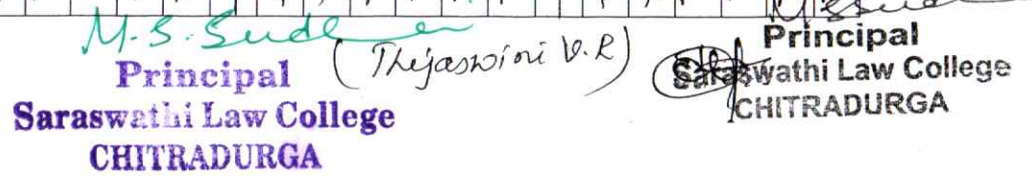 M. S. Sudh
Principal
Saraswathi Law College
CHITRADURGA
(Thejaswini V.R)
Principal
Saraswathi Law College
CHITRADURGA